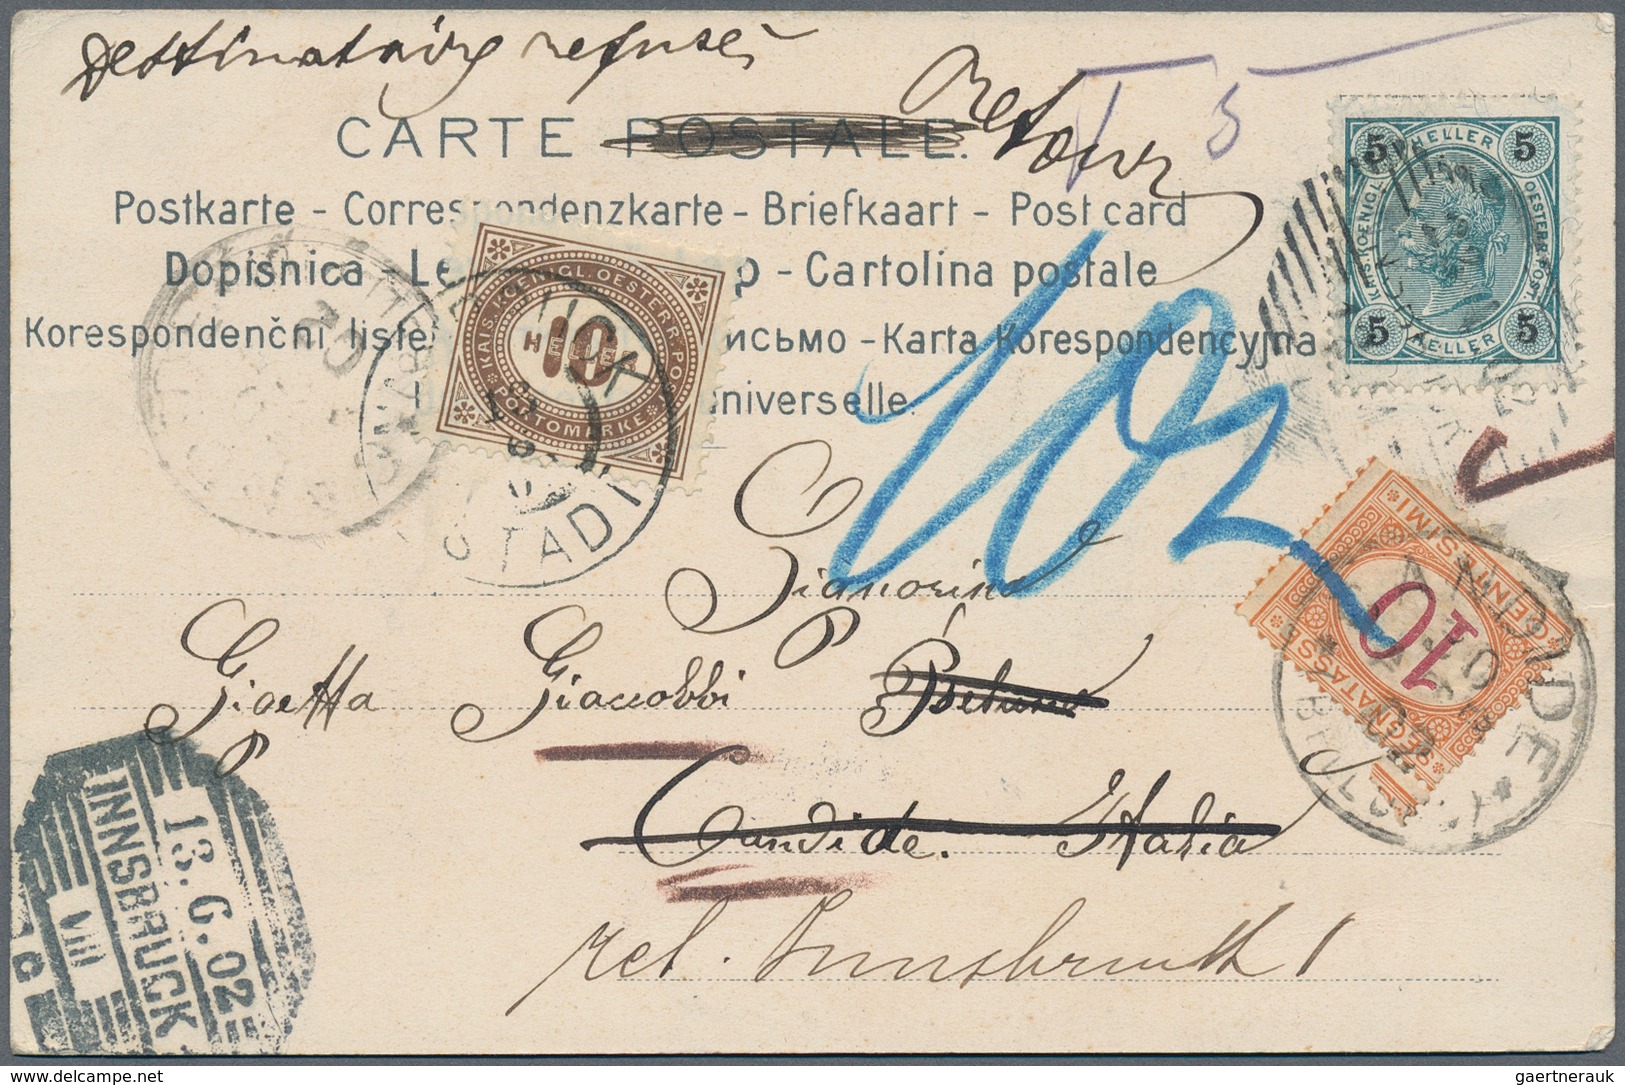 Destinataire refusé
Retour
T 5
CARTE POSTALE.
Postkarte - Correspondenzkarte - Briefkaart - Post card
Dopisnica - Le p - Cartolina postale
Korespondenční liste исьмо - Karta Korespondencyjna
niverselle.
5 HELLER 5
KAIS. KOENIGL. OESTERR. POST.
5 HELLER 5
KAIS. KOENIGL. OESTERR. PO
10
HELLER
PORTOMARKE
STADT
102
10
SEGNATASSE
CENTESIMI
CANDIDE
BELLUNO
Signorina
Gioetta Giacobbi Belluno
Candide. Italia
ret. Innsbruck 1
INNSBRUCK
13.6.02
VIII
gaertnerauk